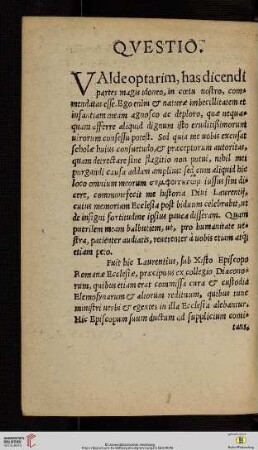 QVESTIO.
VAlde optarim, has dicendi
partes magis idoneo, in cœtu nostro, com-
mendatas esse. Ego enim & naturæ imbecillitatem et
infantiam meam agnosco ac deploro, quæ nequa-
quam afferre aliquid dignum isto eruditissimorum
uirorum consessu potest. Sed quia me uobis excusat
scholæ huius consuetudo, & præceptorum autoritas,
quam detrectare sine flagitio non potui, nihil mei
purgandi causa addam amplius: sed cum aliquid hic
loco omnium meorum iussus sim di-
cere, commonefecit me historia Diui Laurentij,
cuius memoriam Ecclesia post biduum celebrabit, ut
de insigni fortitudine ipsius pauca disseram. Quam
puerilem meam balbutiem, ut, pro humanitate ue-
stra, patienter audiatis, reuerenter à uobis etiam atque
etiam peto.
Fuit hic Laurentius, sub Xisto Episcopo
Romanæ Ecclesiæ, præcipuus ex collegio Diacono-
rum, quibus etiam erat commissa cura & custodia
Eleemosynarum & aliorum redituum, quibus tunc
ministri uerbi & egentes in illa Ecclesia alebantur.
Hic Episcopum suum ductum ad supplicium comi-
tatus,